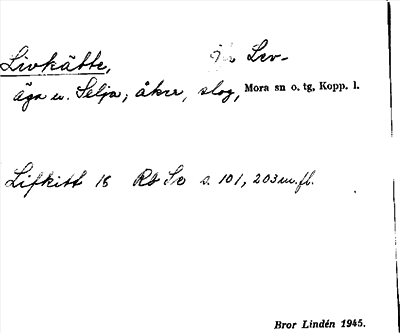 Livkätte, Liv-
äga u. Selja; åker, slog, Mora sn o. tg, Kopp. l.
Lifkitt 18 RS So s. 101, 203 m.fl.
Bror Lindén 1945.